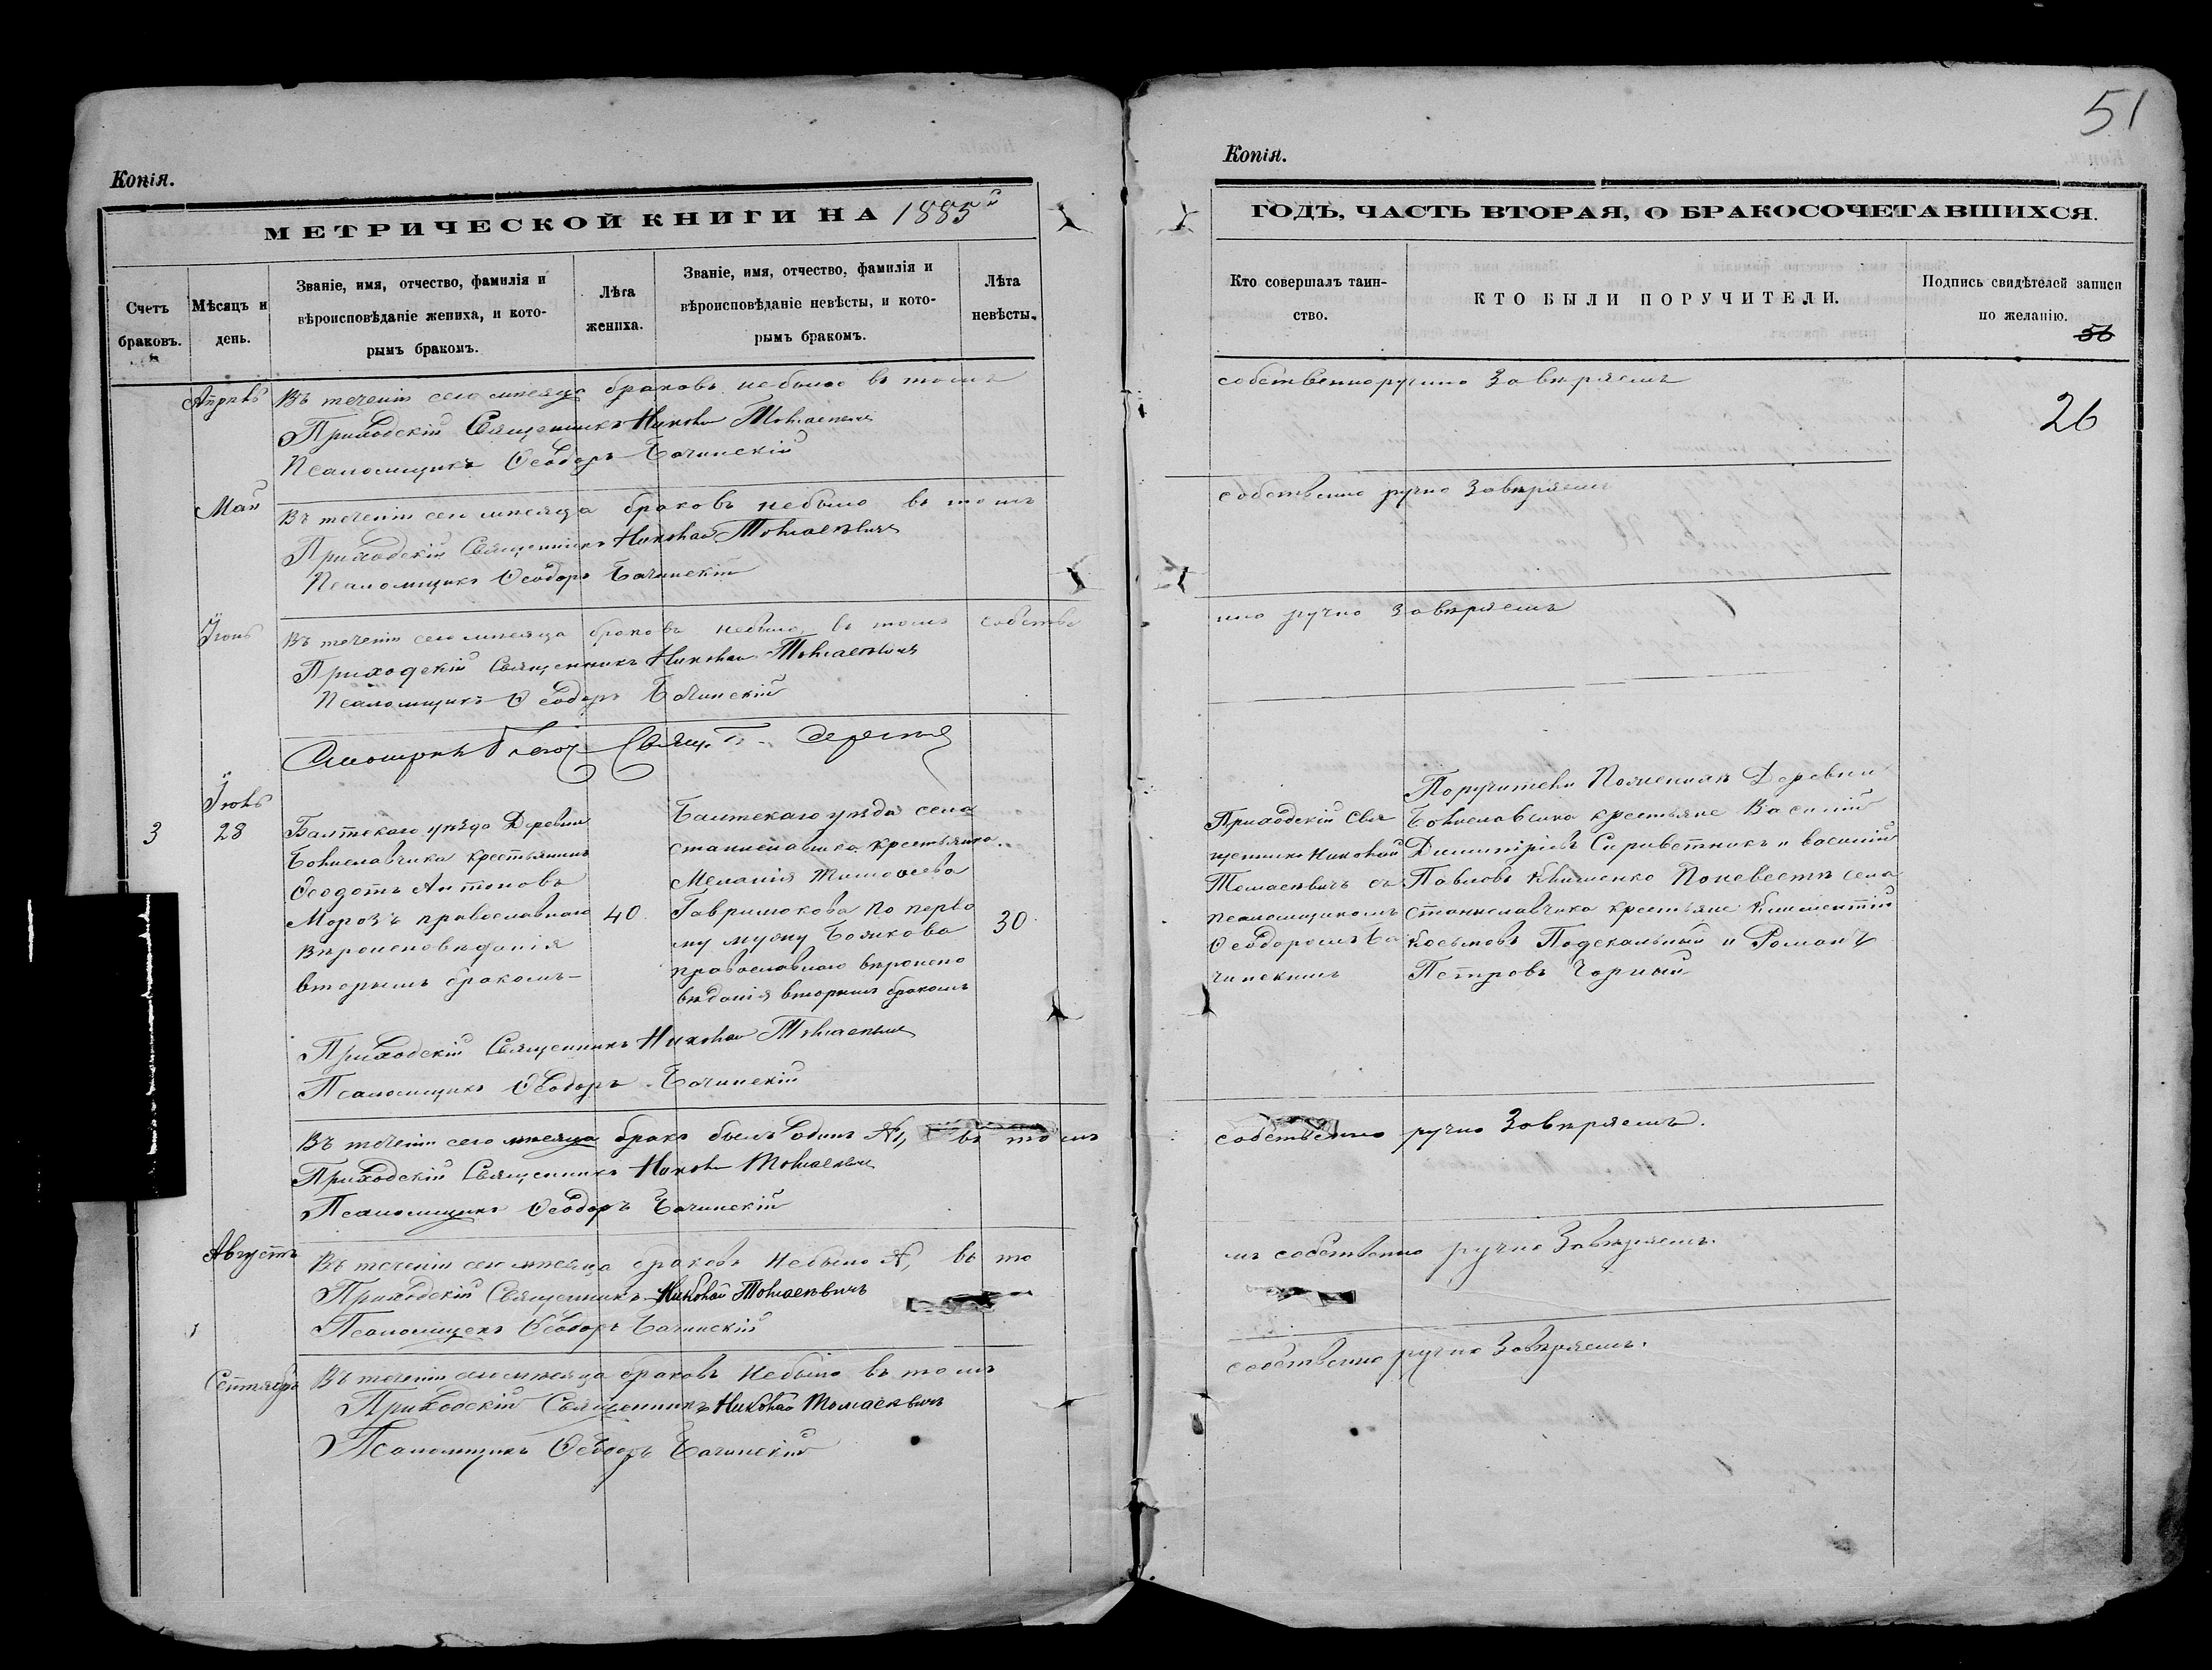 51
Копія.
МЕТРИЧЕСКОЙ КНИГИ НА 1885й
Счетъ браковъ.
Мѣсяцъ и день.
Званіе, имя, отчество, фамилія и вѣроисповѣданіе жениха, и которымъ бракомъ.
Лѣта жениха.
Званіе, имя, отчество, фамилія и вѣроисповѣданіе невѣсты, и которымъ бракомъ.
Лѣта невѣсты.
Апрѣль
Въ теченіи сего мѣсяца браковъ небыло въ томъ
Приходскій Священникъ Николай
Псаломщикъ Ѳеодоръ Бачинскій
Май
Въ теченіи сего мѣсяца браковъ небыло въ томъ
Приходскій Священникъ Николай
Псаломщикъ Ѳеодоръ Бачинскій
Іюнь
Въ теченіи сего мѣсяца браковъ небыло въ томъ собстве
Приходскій Священникъ Николай
Псаломщикъ Ѳеодоръ Бачинскій
Іюль
3
28
Балтскаго уѣзда Деревни
Болиславчика крестьянинъ
Ѳеодотъ Антоновъ
Морозъ православнаго
вѣроисповѣданія
вторымъ бракомъ
40
Балтскаго уѣзда села
Станиславчика крестьянка
Меланія Тимоѳеева
Гаврилюкова по перво
му мужу Божкова
православнаго вѣроиспо
вѣданія вторымъ бракомъ
30
Приходскій Священникъ Николай
Псаломщикъ Ѳеодоръ Бачинскій
Въ теченіи сего мѣсяца бракъ былъ одинъ №1, въ томъ
Приходскій Священникъ Николай
Псаломщикъ Ѳеодоръ Бачинскій
Августъ
Въ теченіи сего мѣсяца браковъ небыло №, въ то
Приходскій Священникъ Николай
Псаломщикъ Ѳеодоръ Бачинскій
Сентябрь
Въ теченіи сего мѣсяца браковъ небыло въ томъ
Приходскій Священникъ Николай
Псаломщикъ Ѳеодоръ Бачинскій
Копія.
ГОДЪ, ЧАСТЬ ВТОРАЯ, О БРАКОСОЧЕТАВШИХСЯ.
Кто совершалъ таинство.
КТО БЫЛИ ПОРУЧИТЕЛИ.
Подпись свидѣтелей записи по желанію.
56
26
собственноручно Завѣряемъ
собственно ручно Завѣряемъ
нно ручно завѣряемъ
Приходскій Свя
щенникъ Николай
съ
псаломщикомъ
Ѳеодоромъ Ба
чинскимъ
Поручители По женихѣ Деревни
Болиславчика крестьяне Василій
Димитріевъ и Василій
Павловъ Клименко По невестѣ села
Станиславчика крестьяне Климентій
Косьмовъ Подскальный и Романъ
Петровъ Чорный
собственно ручно Завѣряемъ.
мъ собственно ручно Завѣряемъ.
собственно ручно Завѣряемъ.